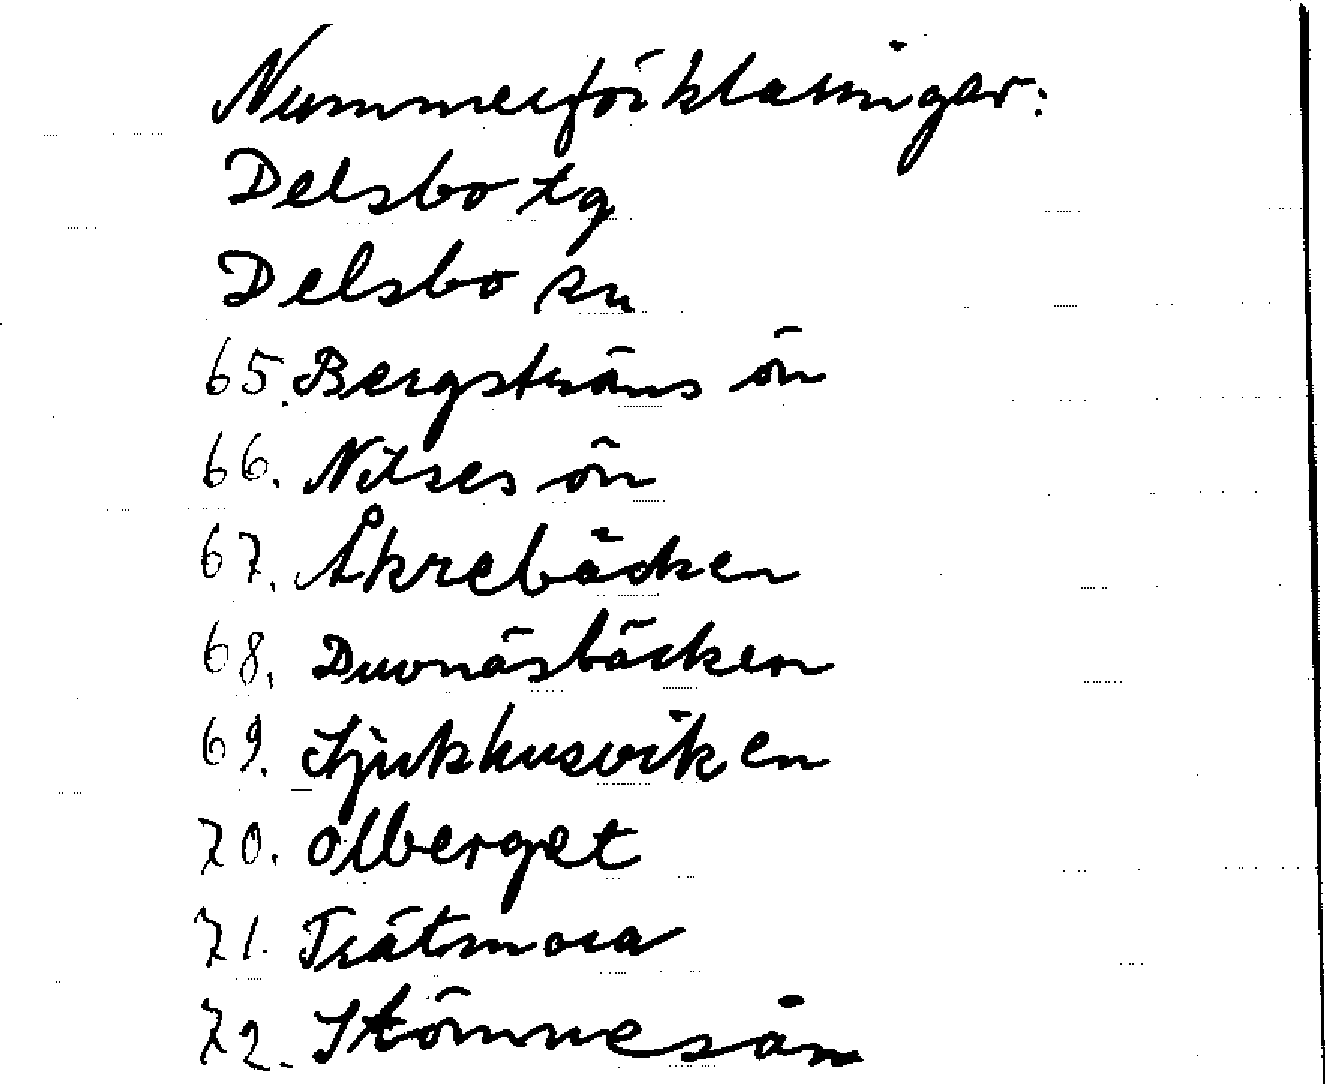 Nummerförklaringar:
Delsbo tg
Delsbo sn
65. Bergsträns ön
66. Nilses ön
67. Åkrebäcken
68. Duvnäsbäcken
69. Sjukhusviken
70. Olberget
71. Trätmora
72. Stömnesån